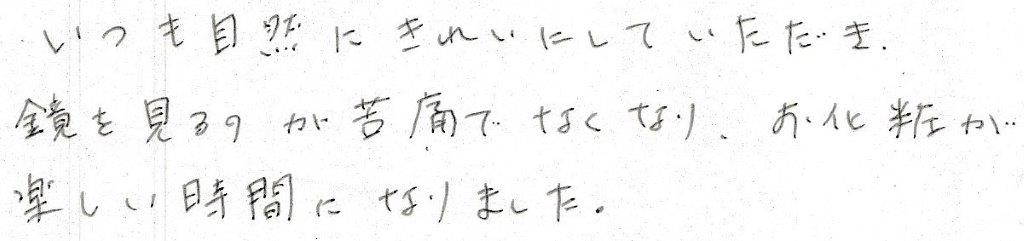 いつも自然にきれいにしていただき、
鏡を見るのが苦痛でなくなり、お化粧が
楽しい時間になりました。